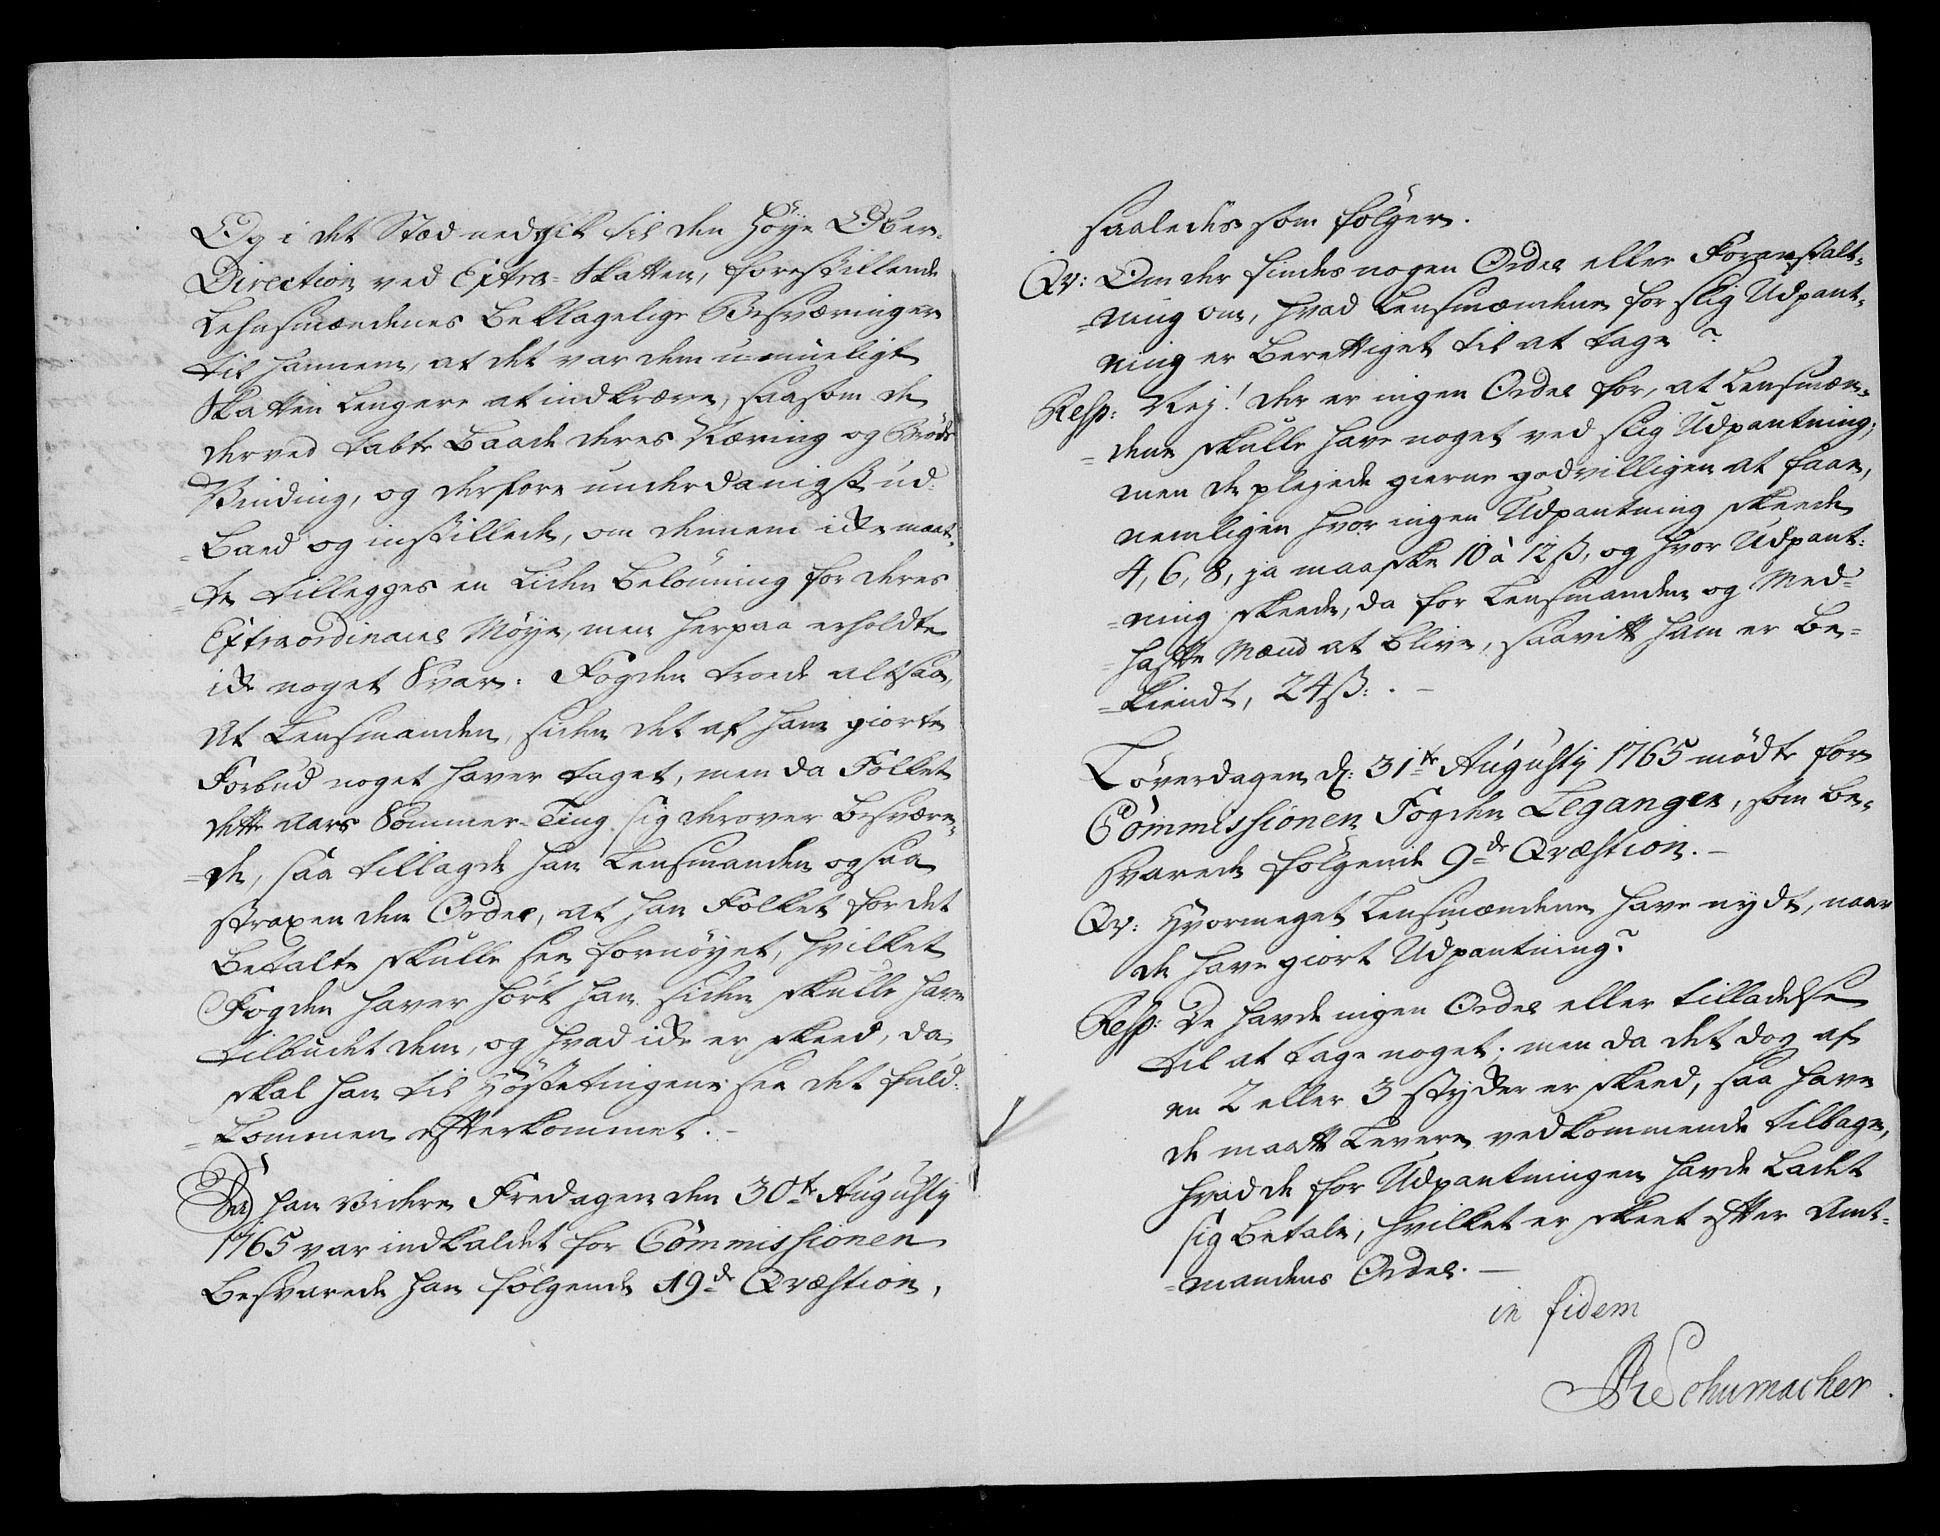 Og i det Stæd nedgik til den høye Ober-
Direction ved Extra-Skatten, forestillende
Lehnsmændenes beklagelige Besværinger
til hannem, at det var dem u-mueligt
Skatten lengere at indkræve, saasom de
derved tabte baade deres Næring og Brøds
Vinding, og derfore underdanigst ud-
-baed og instillede, om dennem icke maat-
-te tillegges en liden belønning for deres
Extraordinaire Møye, men herpaa erholdte
icke noget Svar. Fogden troede altsaa,
at Lensmanden, siden det af ham giorte
Forbud noget haver taget, men da Folket
dette Aars Sommer-Ting sig derover besvære-
-de, saa tillagde han Lensmanden ogsaa
straxen den Ordre, at han Folket for det
betalte skulle see fornøyet, hvilket
Fogden haver hørt han siden skulle have
tilbudet dem, og hvad icke er skeed, da
skal han til Høstetingene see det fuld-
-kommen efterkommet. -
Da han videre Fredagen den 30te Augusty
1765 var indkaldet for Commissionen
besvarede han følgende 19de Qvæstion,
saaledes som følger.
Qv: Om der findes nogen Ordre eller Foranstalt-
-ning om, hvad Lensmændene for slig Udpant-
ning er berettiget til at tage?
Resp: Nej! der er ingen Ordre for, at Lensmæn-
-dene skulle have noget ved slig Udpantning;
men de plejede gierne godvilligen at faae,
nemligen hvor ingen Udpantning skeede
4, 6, 8, ja maaske 10 à 12 ß, og hvor Udpant-
-ning skeede, da for Lensmanden og Med-
-hafte Mænd at blive, saavitt ham er be-
-kiendt, 24 ß: . -
Løverdagen d: 31te Augusty 1765 mødte for
Commissionen Fogden Leganger, som be-
svarede følgende 9de Qvæstion. -
Qv: Hvormeget Lensmændene have nydt, naar
de have giort Udpantning?
Resp: De havde ingen Ordre eller tilladelse
til at tage noget; men da det dog af
en 2 eller 3 stycker er skeed, saa have
de maatt levere vedkommende tilbage,
hvad de for Udpantningen havde ladet
sig betale, hvilket er skeet efter Amt-
-mandens Ordre. -
in fidem
Schumacher.